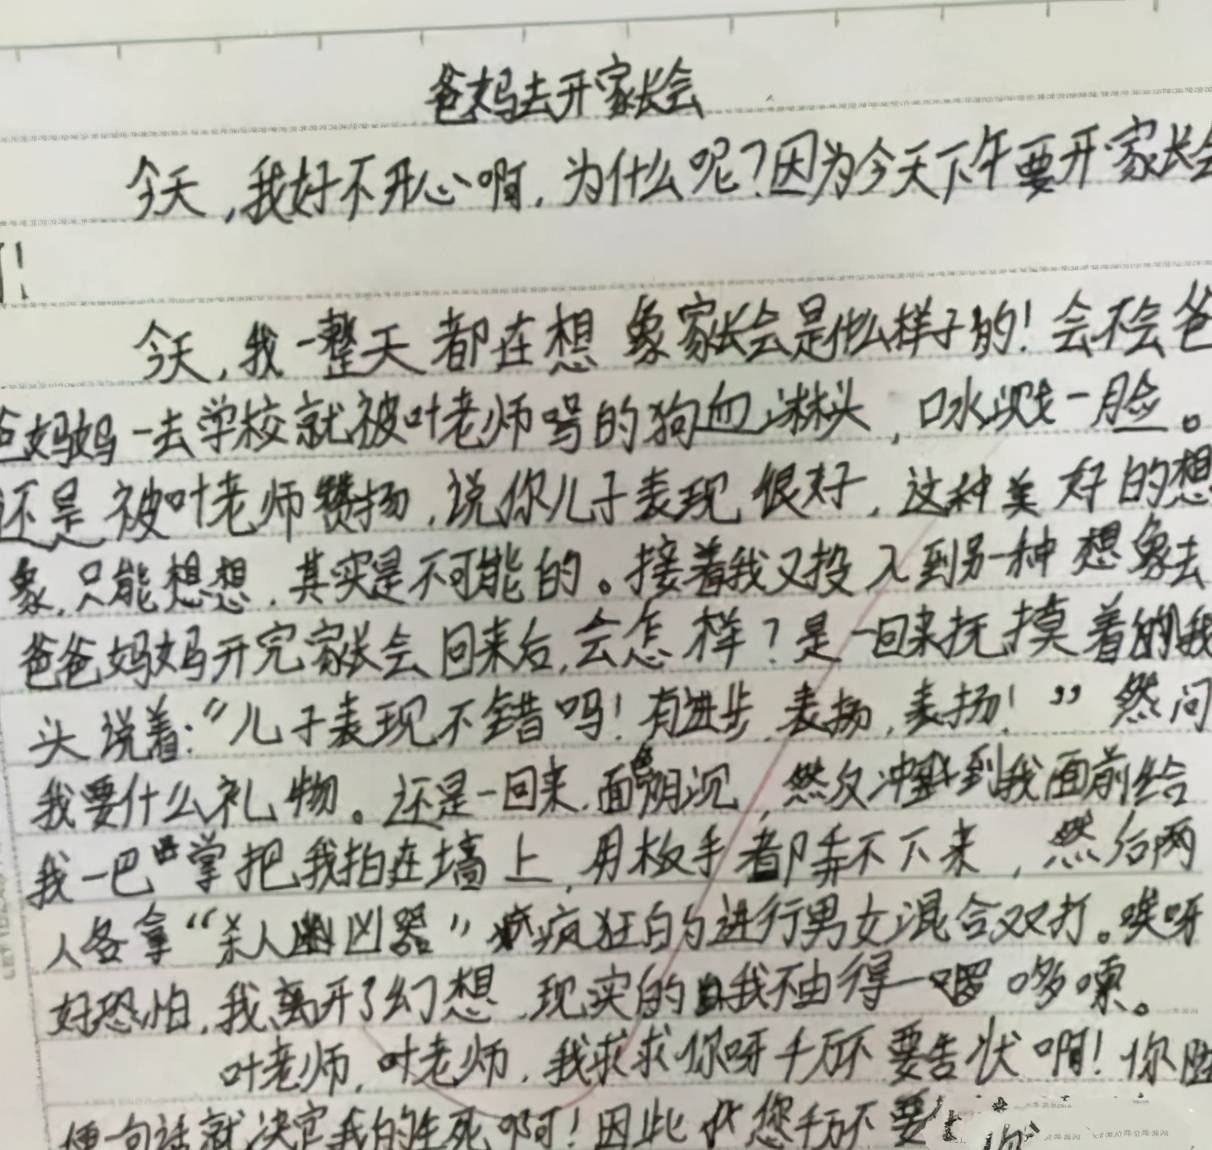 爸妈去开家长会
今天,我好不开心啊,为什么呢?因为今天下午要开家长会
!
今天,我一整天都在想象家长会是什么样子的!会不会爸
爸妈妈一去学校就被叶老师骂的狗血淋头,口水溅一脸。
还是被叶老师赞扬,说你儿子表现很好,这种美好的想
象,只能想想,其实是不可能的。接着我又投入到另一种想象去
爸爸妈妈开完家长会回来后,会怎样?是一回来抚摸着的我
头说着:“儿子表现不错吗!有进步,表扬,表扬!”然问
我要什么礼物。还是一回来,面色阴沉,然父冲到我面前给
我一巴掌把我拍在墙上,用板手都弄不下来,然后两
人各拿“杀人凶器”疯狂的进行男女混合双打。唉呀
好恐怕,我离开了幻想,现实的我不由得一啰哆嗦。
叶老师,叶老师,我求求你呀千万不要告状啊!你
便句话就决定我的生死啊!因此 您千万不要 你